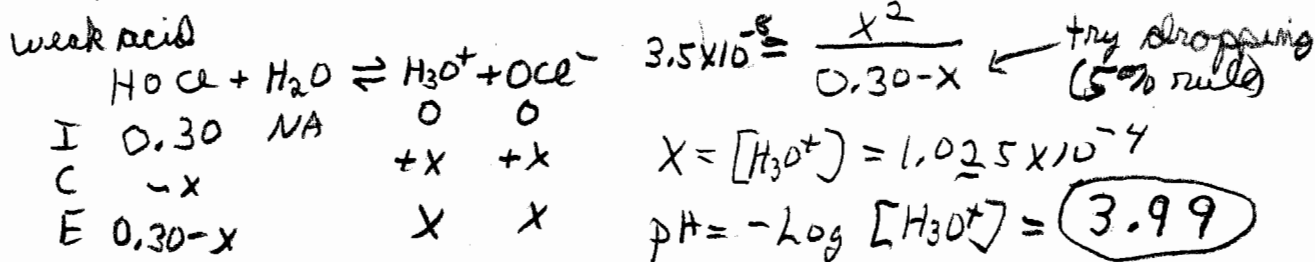 weak acid
HOCl + H₂O ⇌ H₃O⁺ + OCl⁻
I 0.30 NA 0 0
C -x +x +x
E 0.30-x x x
3.5x10⁻⁸ = x² / 0.30-x ← try dropping
(5% rule)
x = [H₃O⁺] = 1.025 x 10⁻⁴
pH = -Log [H₃O⁺] = 3.99